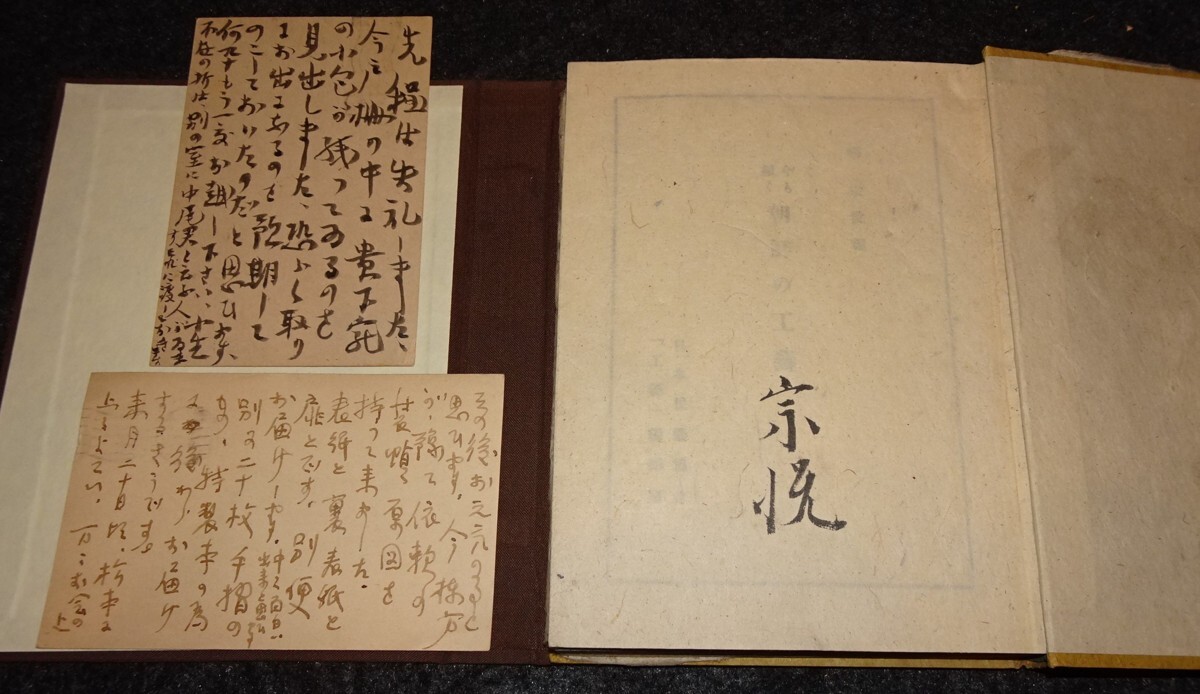 先程は失礼しました、
今戸棚の中に貴下宛
の小包が残つてゐるのを
見出しました、恐らく取り
にお出になるのを予期して
のこしておいたのだと思ひます、
何卒もう一度お越し下さい、小生
不在の折は、別の室に中尾君と云ふ人が居
その後お元気のことゝ
思ひます、今棟方
が、兼て依頼の
装幀の原図を
持つて来ました、
表紙と裏表紙と
扉とです、別便
お届けします、
別の二十枚手摺の
特製本の為
お届け
するさうです
来月二十日頃、
上るよてい、万々お会の上
の工
宗悦